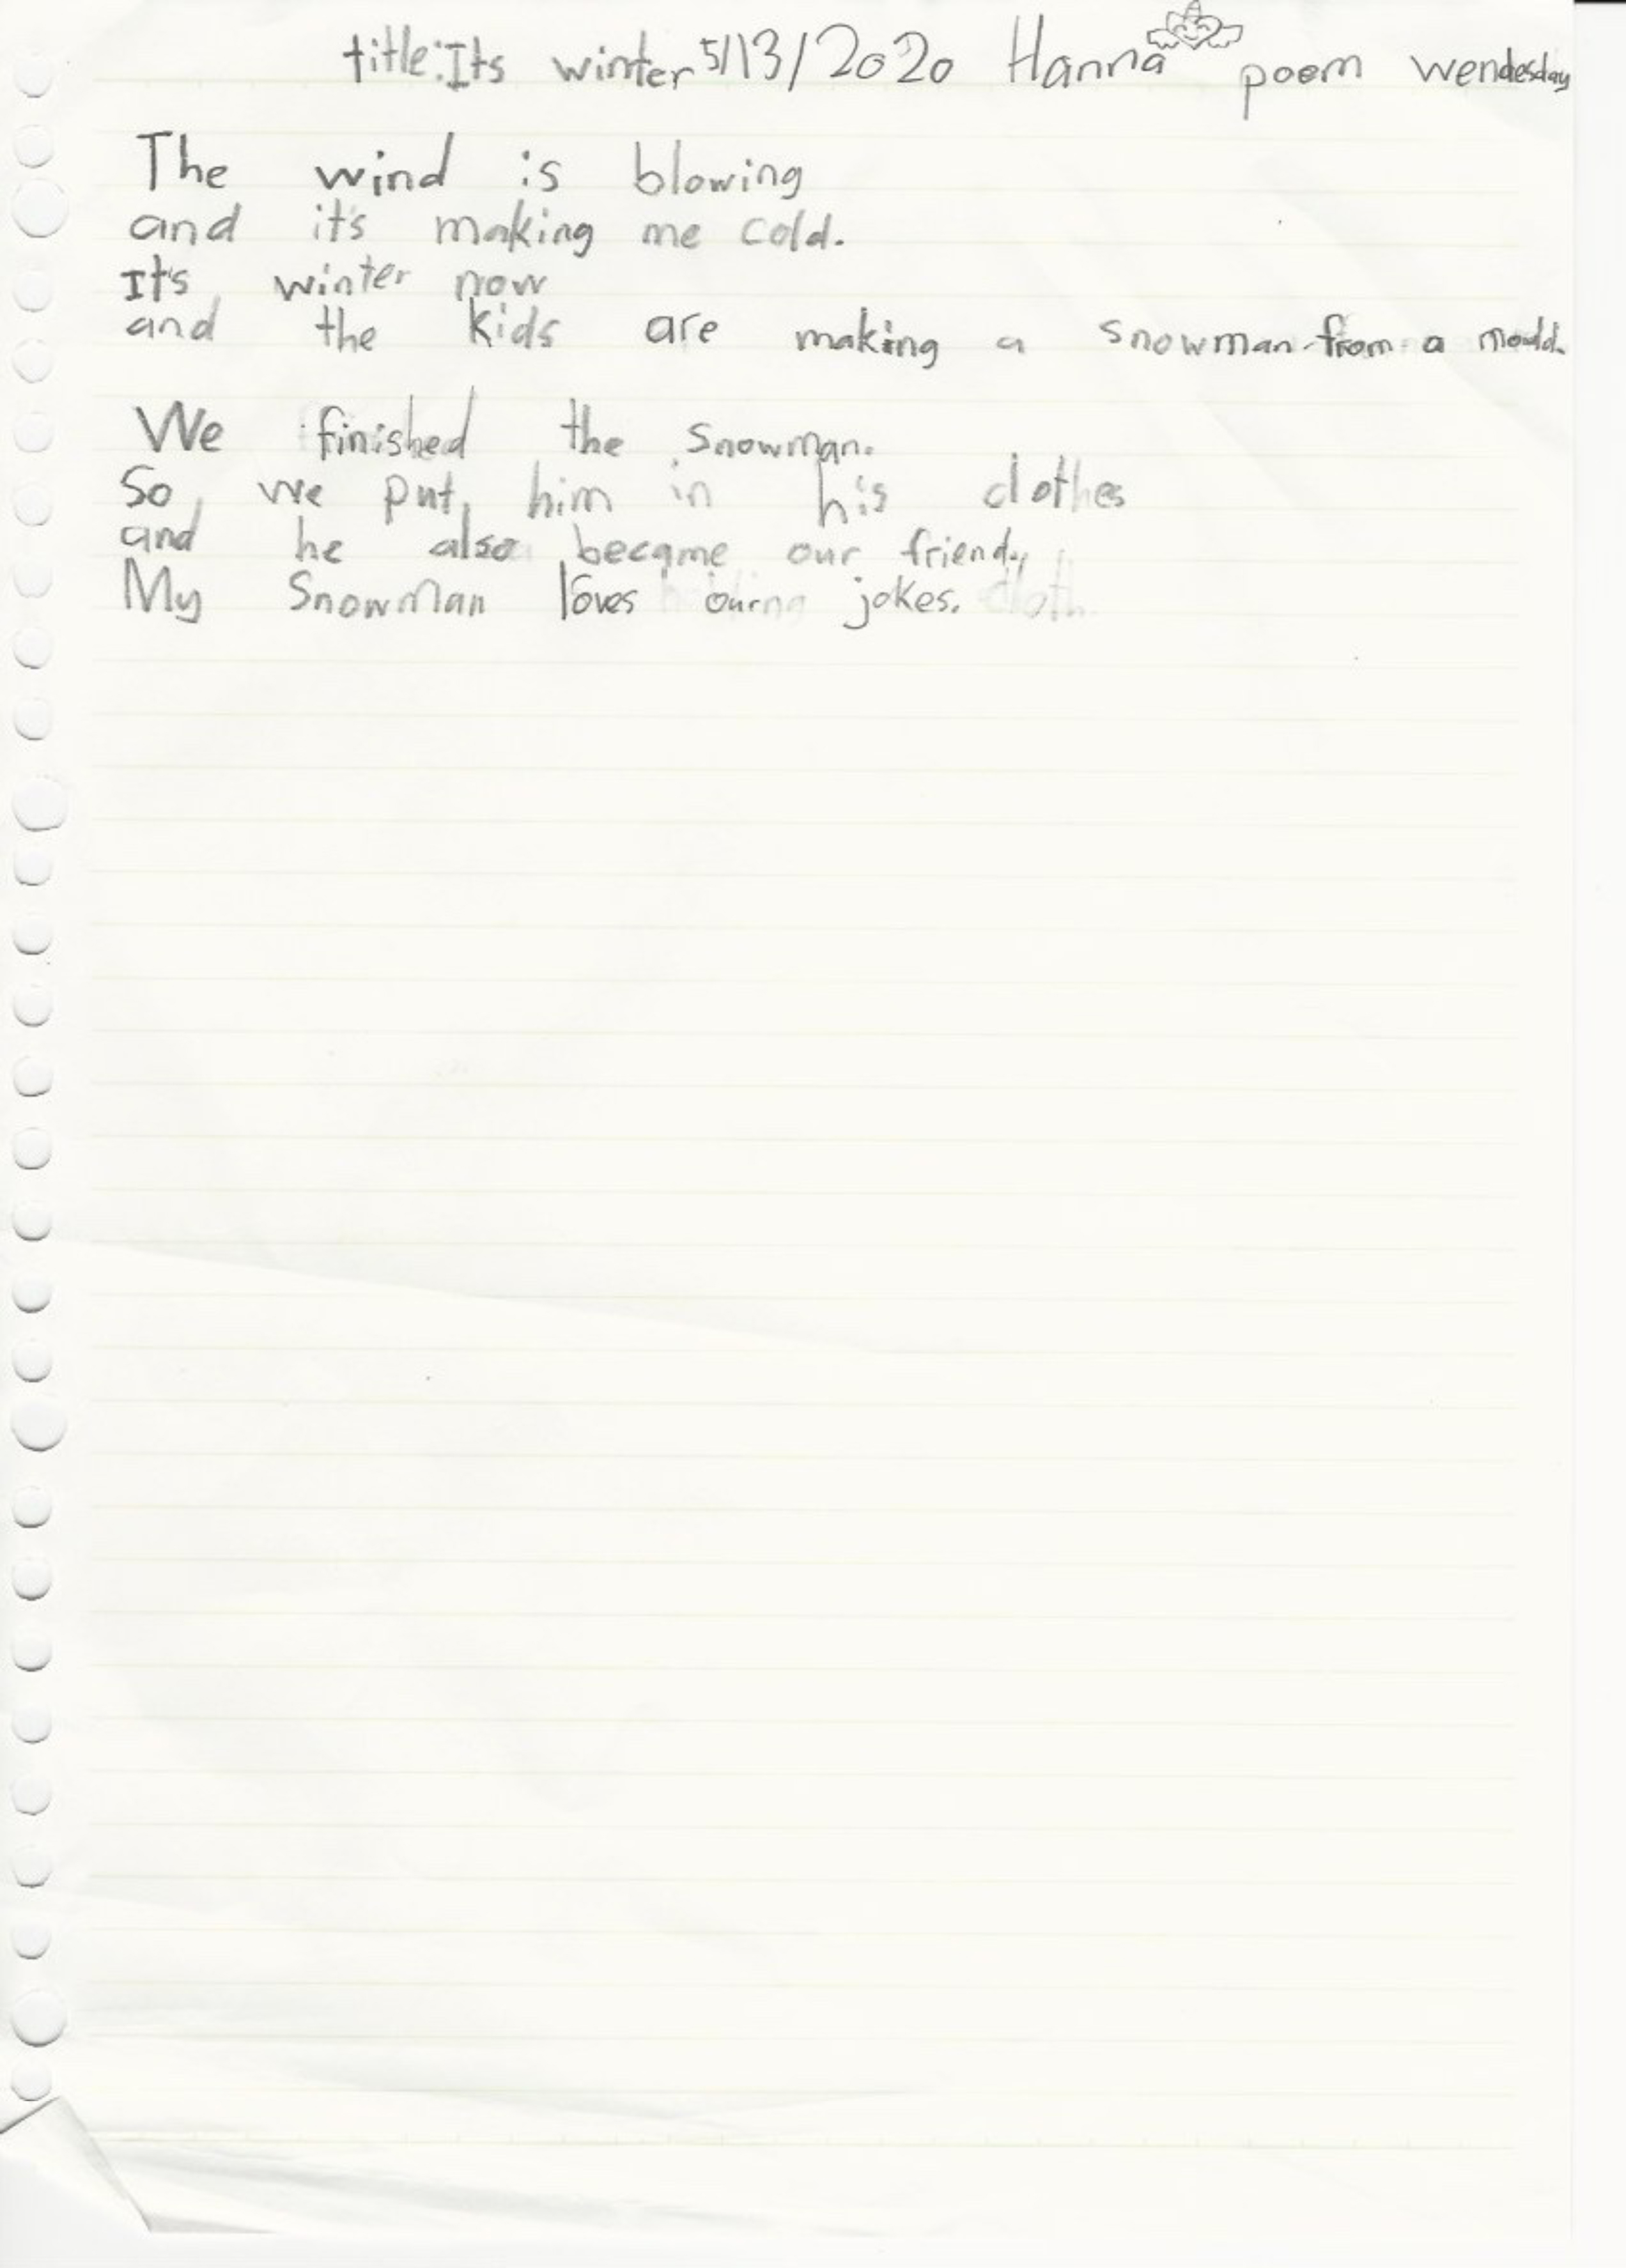 title: Its winter 5/13/2020 Hanna poem wendesday
The wind is blowing
and it's making me cold.
It's winter now
and the kids are making a snowman from a mould.
We finished the snowman.
So we put him in his clothes
and he also became our friend,
My Snowman loves our jokes.